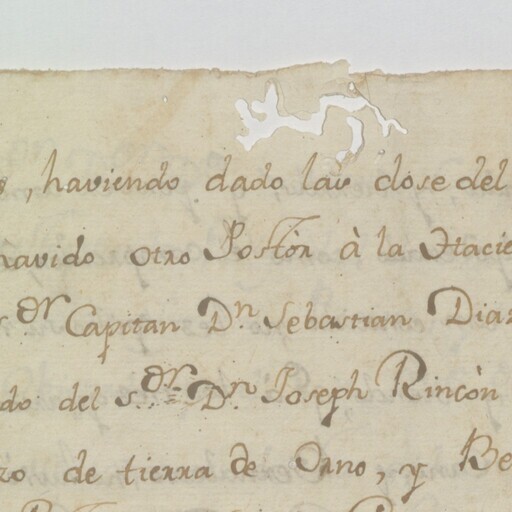 , haviendo dado las dose del
havido otro Postòr à la Hacie
s.or Capitan Dn Sebastian Diaz
do del s.or Dn Joseph Rincòn
ro de tierra de Orno, y Be